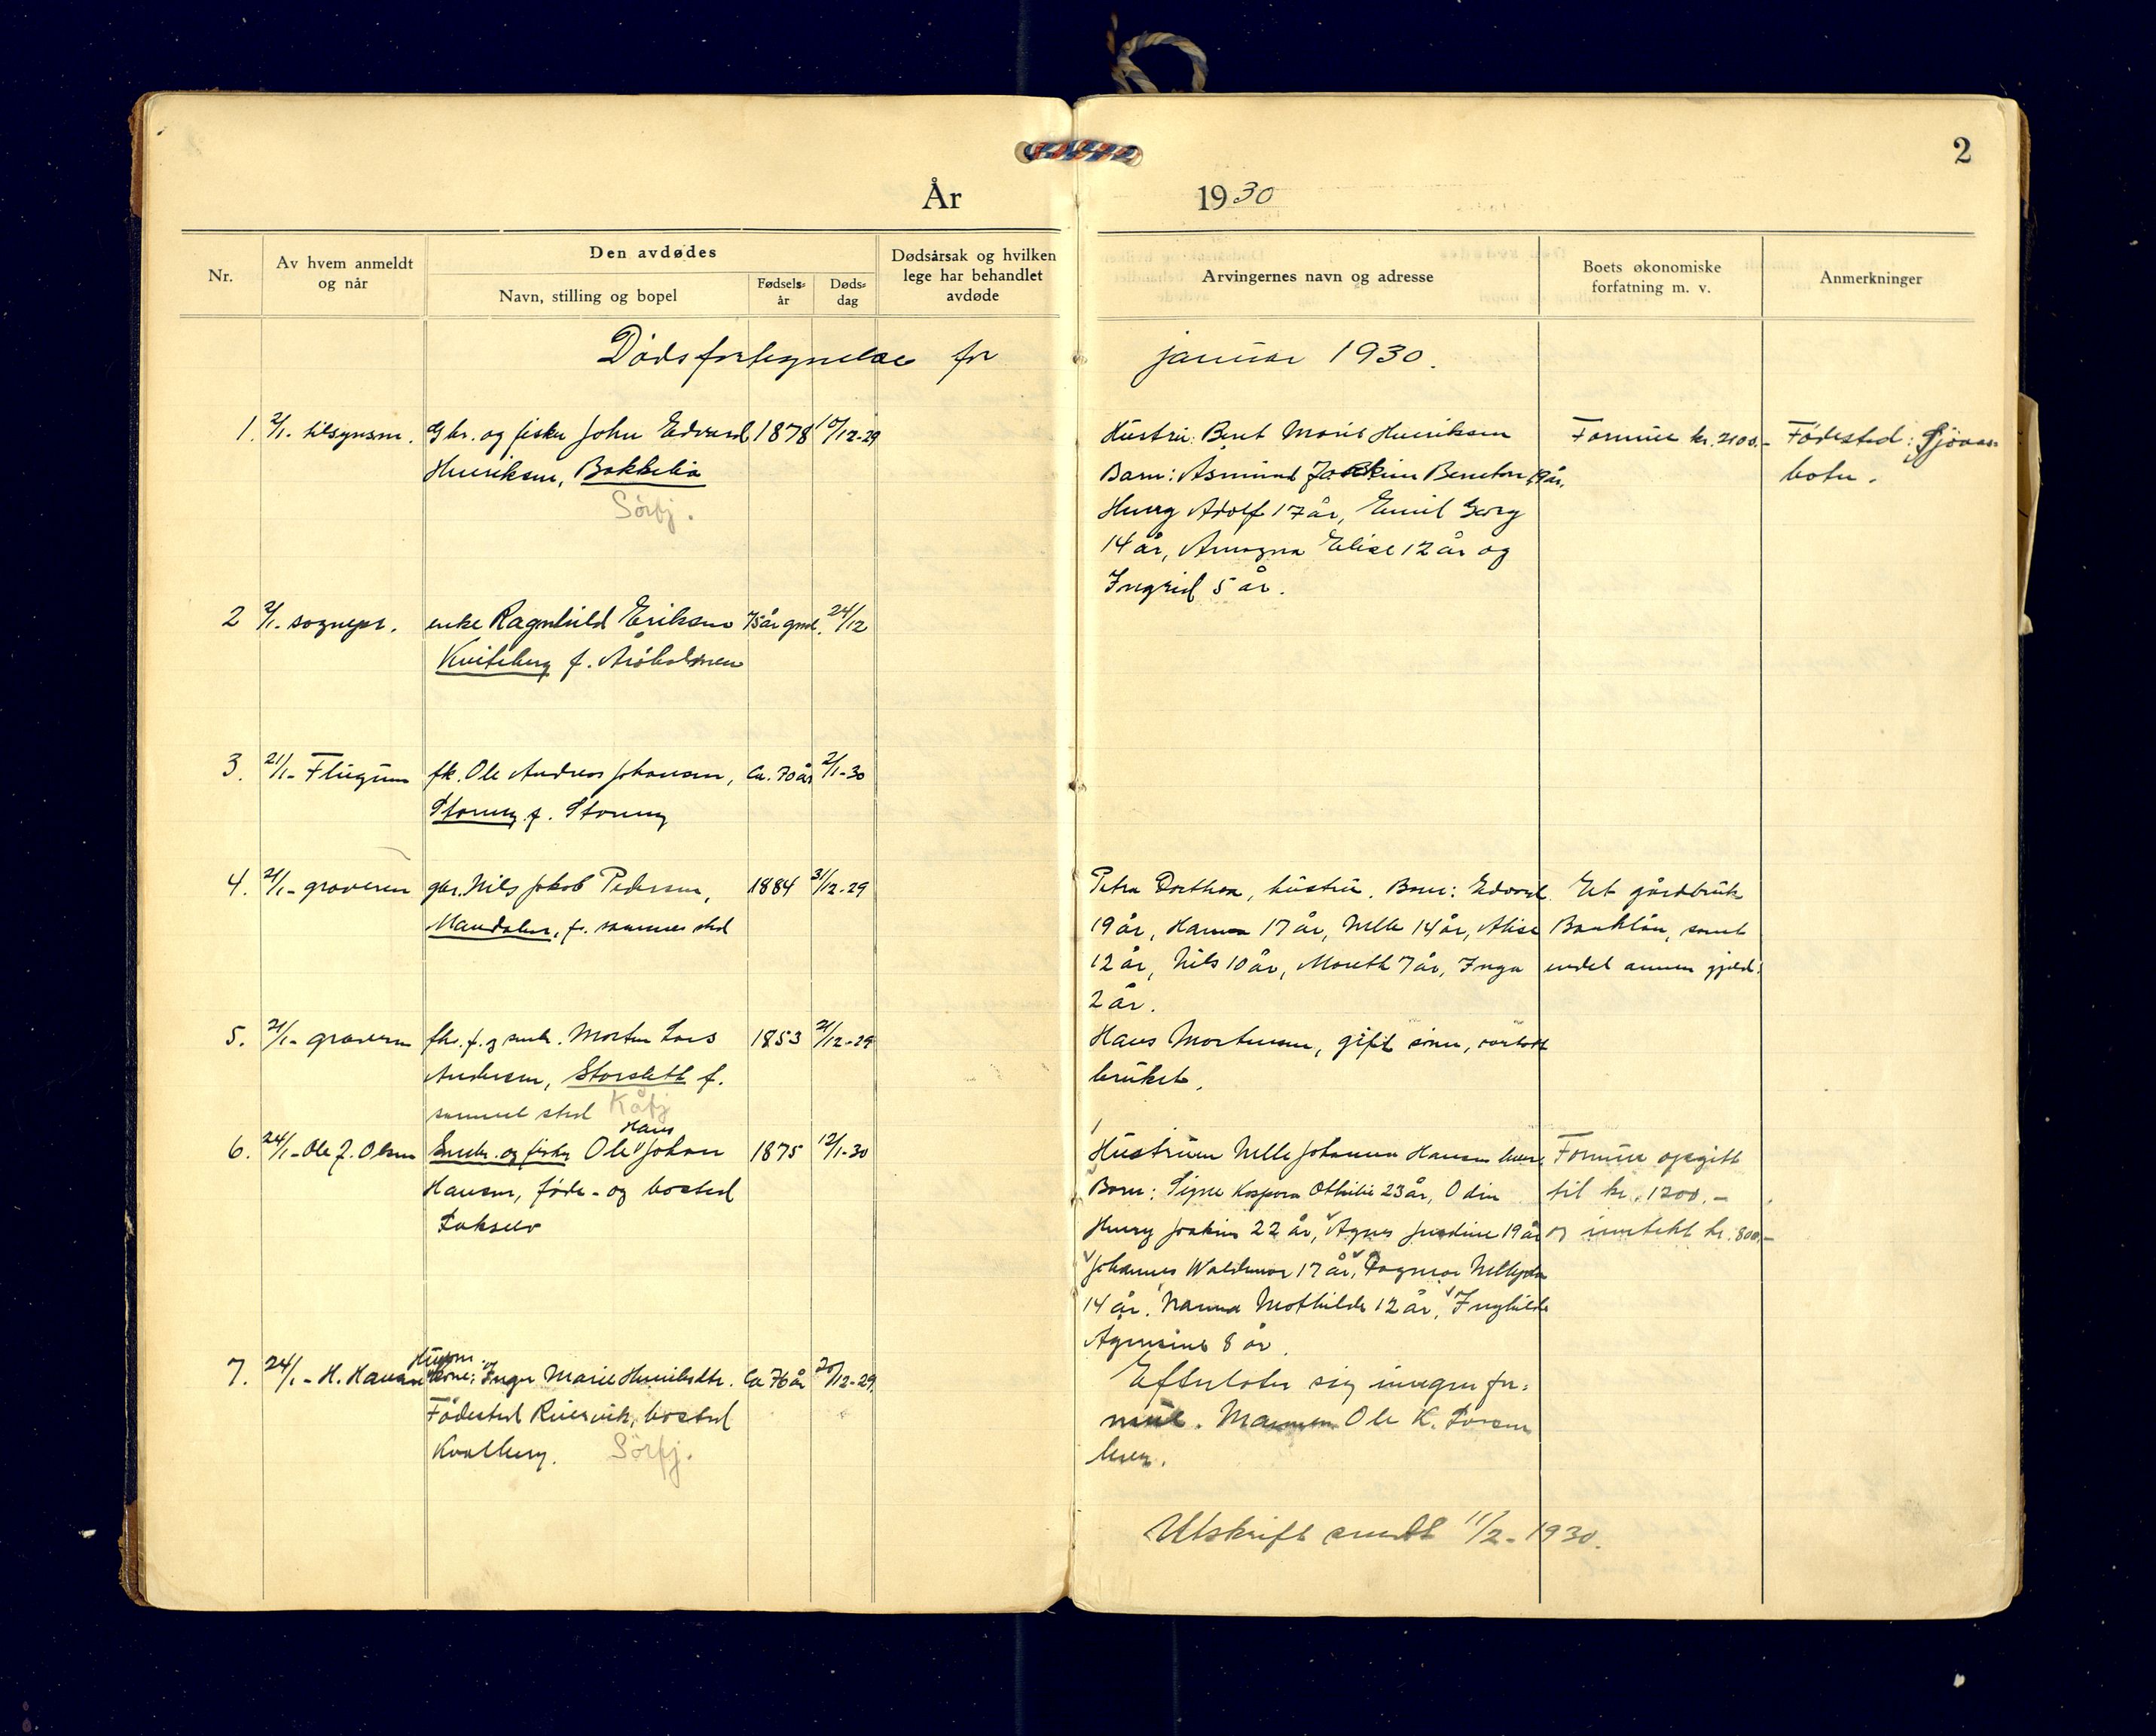 2
År 1930
Nr.
Av hvem anmeldt
og når
Den avdødes
Navn, stilling og bopel
Fødsels-
år
Døds-
dag
Dødsårsak og hvilken
lege har behandlet
avdøde
Arvingernes navn og adresse
Boets økonomiske
forfatning m. v.
Anmerkninger
Dödsfortegnelse for januar 1930.
1. 2/1. tilsynsm. Gbr. og fisker John Edvard 1878 10/12-29
Henriksen, Bakkelia
Sörfj.
Hustru: Beret Marie Henriksen
Barn: Asmund Joakim Beneton 19 år,
Henry Adolf 17 år, Emil Georg
14 år, Amagna Elise 12 år og
Ingrid 5 år.
Formue kr. 2100.-
Födested:
botn.
2 2/1. sognepr. enke Ragnhild Eriksen 75 år gml. 24/12
Kviteberg f. Åröholmen
3. 21/1- Flugum fk. Ole Andreas Johansen, Ca. 70 år 2/1-30
f.
4. 21/1- graveren gbr. Nils Jakob Pedersen, 1884 31/12-29
Mandalen, f. sammes sted
Petra Dorthea, hustru. Barn: Edvard
19 år, Hanna 17 år, Nelle 14 år, Alise
12 år, Nils 10 år, Mareth 7 år, Inga
2 år.
Et gårdbruk
Banklån, samt
endel annen gjeld.
5. 21/1- graveren fhv. f. og smbr. Morten Lars 1853 21/12-29
Andersen, Storslett f.
samme sted Kåfj
Hans Mortensen, gift sönn, overtatt
bruket.
6. 24/1- Ole J. Olsen Smbr. og fisker Ole Hans Johan 1875 12/1-30
Hansen, föde- og bosted
Lakselv
Hustruen Nelle Johanna Hansen lever.
Barn: Signe Kaspara Othilie 23 år, Odin
Henry Joakim 22 år, Agnes Jensine 19 år
Johannes Waldemar 17 år, Dagmar
14 år. Nanna Mathilde 12 år, Inghilde
8 år.
Formue opgitt
til kr. 1200.-
og inntekt kr. 800.-
7. 24/1- H. Hansen Husm. kone: Inger Marie Henriksdtr. Ca 76 år 20/12-29.
Födested bosted
Kvalberg. Sörfj.
Efterlater sig ingen for-
mue. Mannen Ole K. Larsen
lever.
Utskrift sendt 11/2-1930.